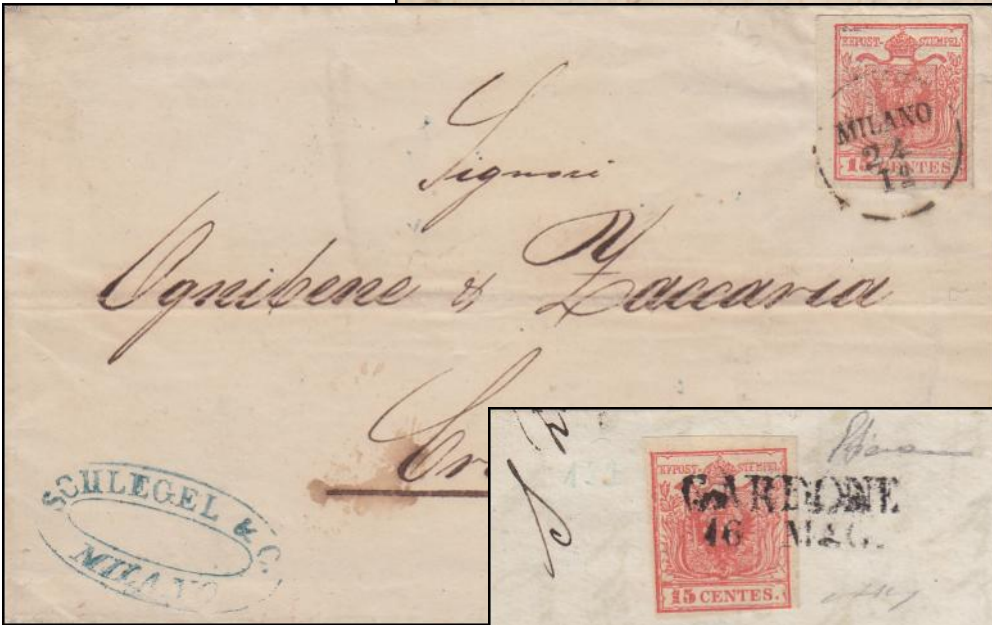 KKPOST-STEMPEL
MILANO
24
12
15 CENTES
Signori
Ognibene & Zaccaria
SCHLEGEL & C.
MILANO
S
KKPOST-STEMPEL
GARDONE
16 MAG.
15 CENTES.